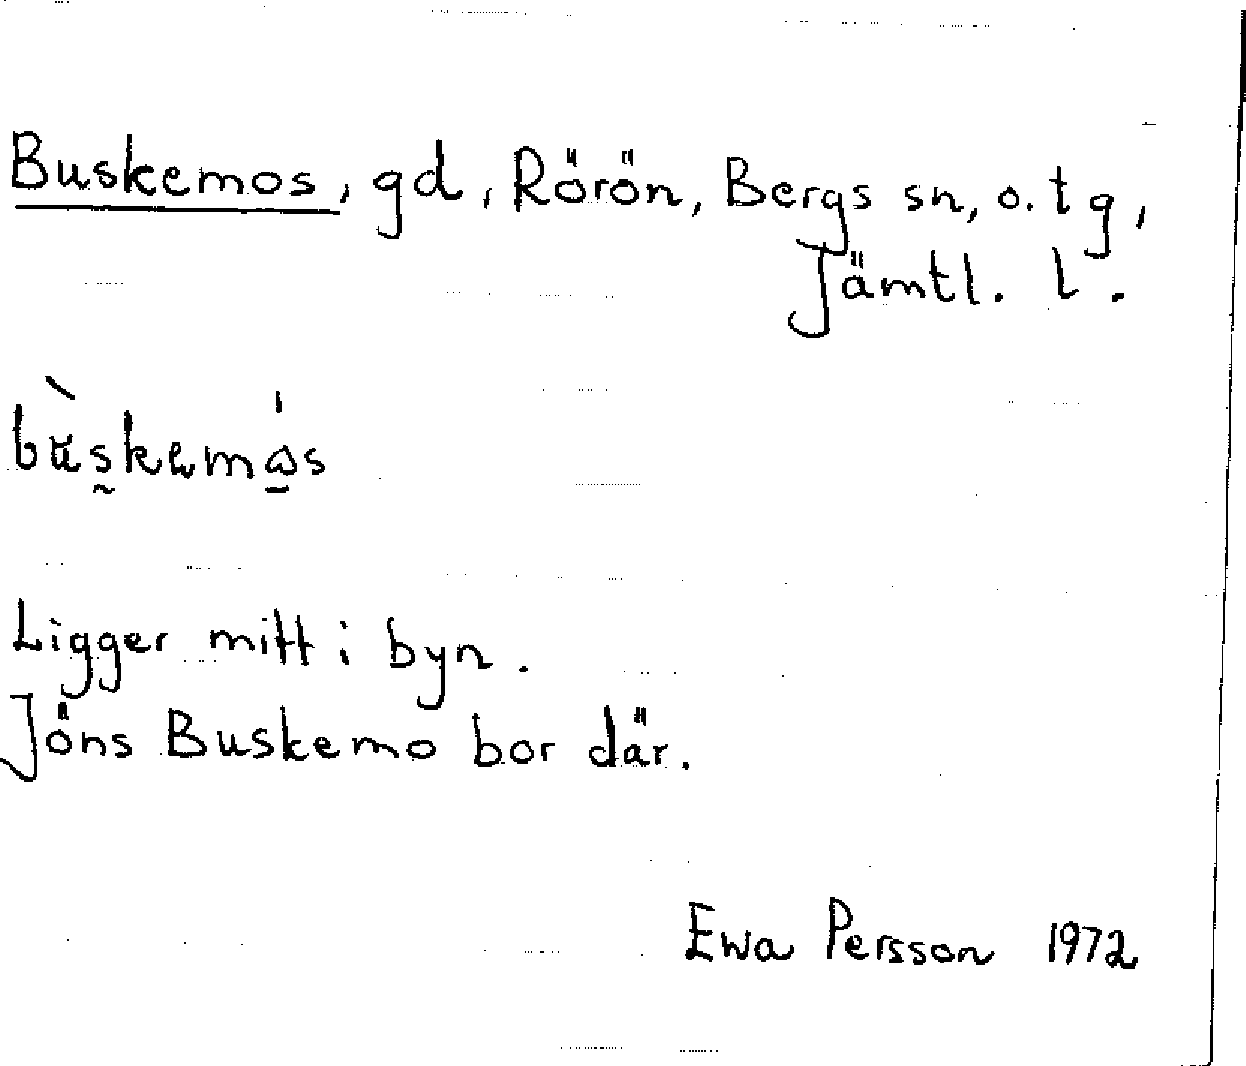 Buskemos, gd, Rörön, Bergs sn, o. tg,
Jämtl. l.
Ligger mitt i byn.
Jöns Buskemo bor där.
Ewa Persson 1972